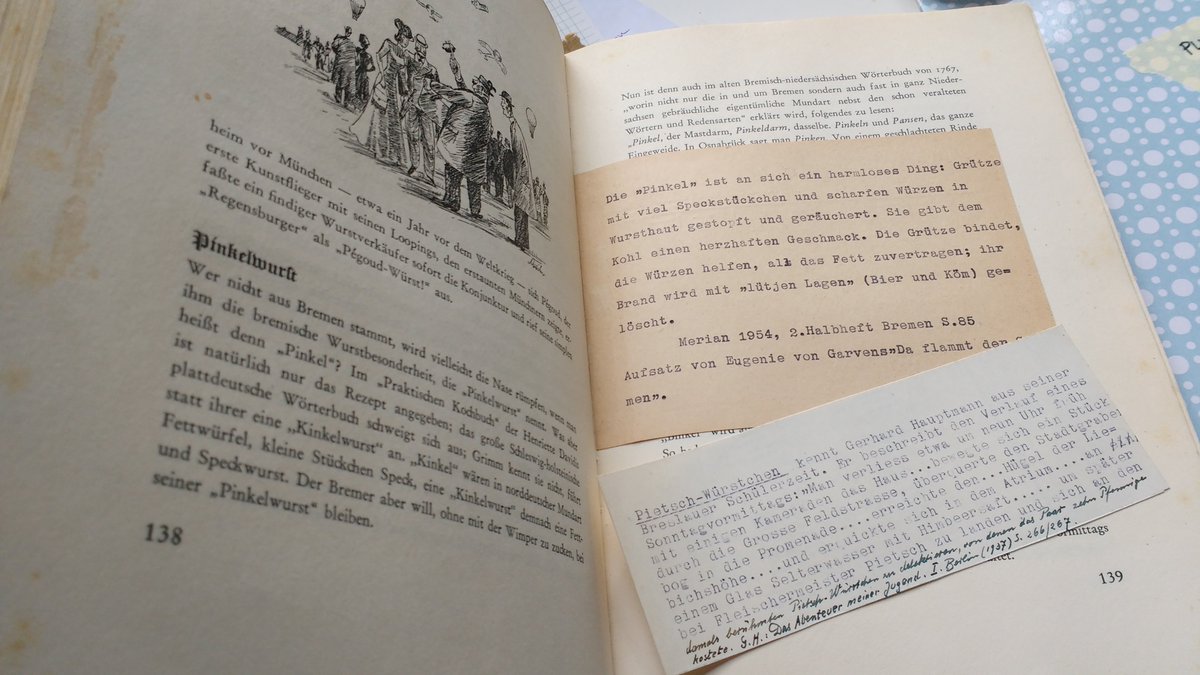 heim vor München — etwa ein Jahr vor dem Weltkrieg — sich Pégoud, der
erste Kunstflieger mit seinen Loopings, den erstaunten Münchnern zeigte, er-
faßte ein findiger Wurstverkäufer sofort die Konjunktur und rief seine simplen
„Regensburger“ als „Pégoud-Würst!“ aus.
Pinkelwurst
Wer nicht aus Bremen stammt, wird vielleicht die Nase rümpfen, wenn man
ihm die bremische Wurstbesonderheit, die „Pinkelwurst“ nennt. Was aber
heißt denn „Pinkel“? Im „Praktischen Kochbuch“ der Henriette Davidis
ist natürlich nur das Rezept angegeben; das große Schleswig-holsteinische
plattdeutsche Wörterbuch schweigt sich aus; Grimm kennt sie nicht, führt
statt ihrer eine „Kinkelwurst“ an. „Kinkel“ wären in norddeutscher Mundart
Fettwürfel, kleine Stückchen Speck, eine „Kinkelwurst“ demnach eine Fett-
und Speckwurst. Der Bremer aber will, ohne mit der Wimper zu zucken, bei
seiner „Pinkelwurst“ bleiben.
138
Nun ist denn auch im alten Bremisch-niedersächsischen Wörterbuch von 1767,
„worin nicht nur die in und um Bremen sondern auch fast in ganz Nieder-
sachsen gebräuchliche eigentümliche Mundart nebst den schon veralteten
Wörtern und Redensarten“ erklärt wird, folgendes zu lesen:
„Pinkel, der Mastdarm, Pinkeldarm, dasselbe. Pinkeln und Pansen, das ganze
Eingeweide. In Osnabrück sagt man Pinken. Von einem geschlachteten Rinde
Die »Pinkel« ist an sich ein harmloses Ding: Grütze
mit viel Speckstückchen und scharfen Würzen in
Wursthaut gestopft und geräuchert. Sie gibt dem
Kohl einen herzhaften Geschmack. Die Grütze bindet,
die Würzen helfen, all das Fett zuvertragen; ihr
Brand wird mit »lütjen Lagen« (Bier und Köm) ge=
löscht.
Merian 1954, 2.Halbheft Bremen S.85
Aufsatz von Eugenie von Garvens»Da flammt der
men».
Pietsch-Würstchen kennt Gerhard Hauptmann aus seiner
Breslauer Schülerzeit. Er beschreibt den Verlauf eines
Sonntagvormittags:"Man verliess etwa um neun Uhr früh
mit einigen Kameraden das Haus...bewegte sich ein Stück
durch die Grosse Feldstrasse, überquerte den Stadtgrabe
bog in die Promenade....erreichte den...Hügel der Lie=
bichshöhe....und erquickte sich in dem Atrium....an
einem Glas Selterwasser mit Himbeersaft.... um später
bei Fleischermeister Pietsch zu landen und sich an den
damals berühmten Pietsch-Würstchen zu delektieren, von denen das Paar zehn Pfennige
kostete. G.H.: Das Abenteuer meiner Jugend. I. Berlin (1937) S. 266/267.
ormittags
139